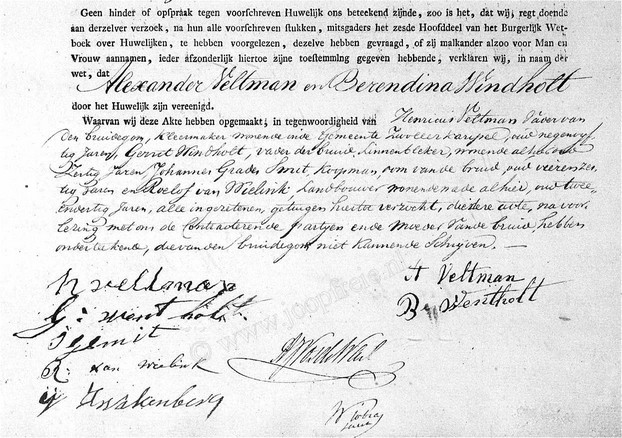 Geen hinder of opspraak tegen voorschreven Huwelijk ons beteekend zijnde, zoo is het, dat wij, regt doende
aan derzelver verzoek, na hun alle voorschreven stukken, mitsgaders het zesde Hoofddeel van het Burgerlijk Wet-
boek over Huwelijken, te hebben voorgelezen, dezelve hebben gevraagd, of zij malkander alzoo voor Man en
Vrouw aannamen, ieder afzonderlijk hiertoe zijne toestemming gegeven hebbende, verklaren wij, in naam der
wet, dat Alexander Veltman en Berendina Windholt
door het Huwelijk zijn vereenigd.
Waarvan wij deze Akte hebben opgemaakt; in tegenwoordigheid van Henricus Veltman Vader van
den bruidegom, kleermaker wonende inde Gemeente Zwollerkarspel, oud negenvyf
tig Jaren, Gerrit Windholt, vader der bruid, Linnenbleker, wonende alhier oud
Zestig Jaren, Johannes Grades Smit, Koopman, oom van de bruid, oud vierenzes
tig Jaren en Roelof van Wielink Landbouwer wonende mede alhier, oud twee
entwertig Jaren, alle ingezetenen, getuigen hiertoe verzocht, die deze acte, na voor
lezing met ons, de contracterende partyen en de moeder vande bruid, hebben
onderteekend, die van den bruidegom niet kunnende Schryven. —
H veltman
A Veltman
G: went holt
B: Wentholt
J g smit
R: van wielink
© www.joopfleie.nl